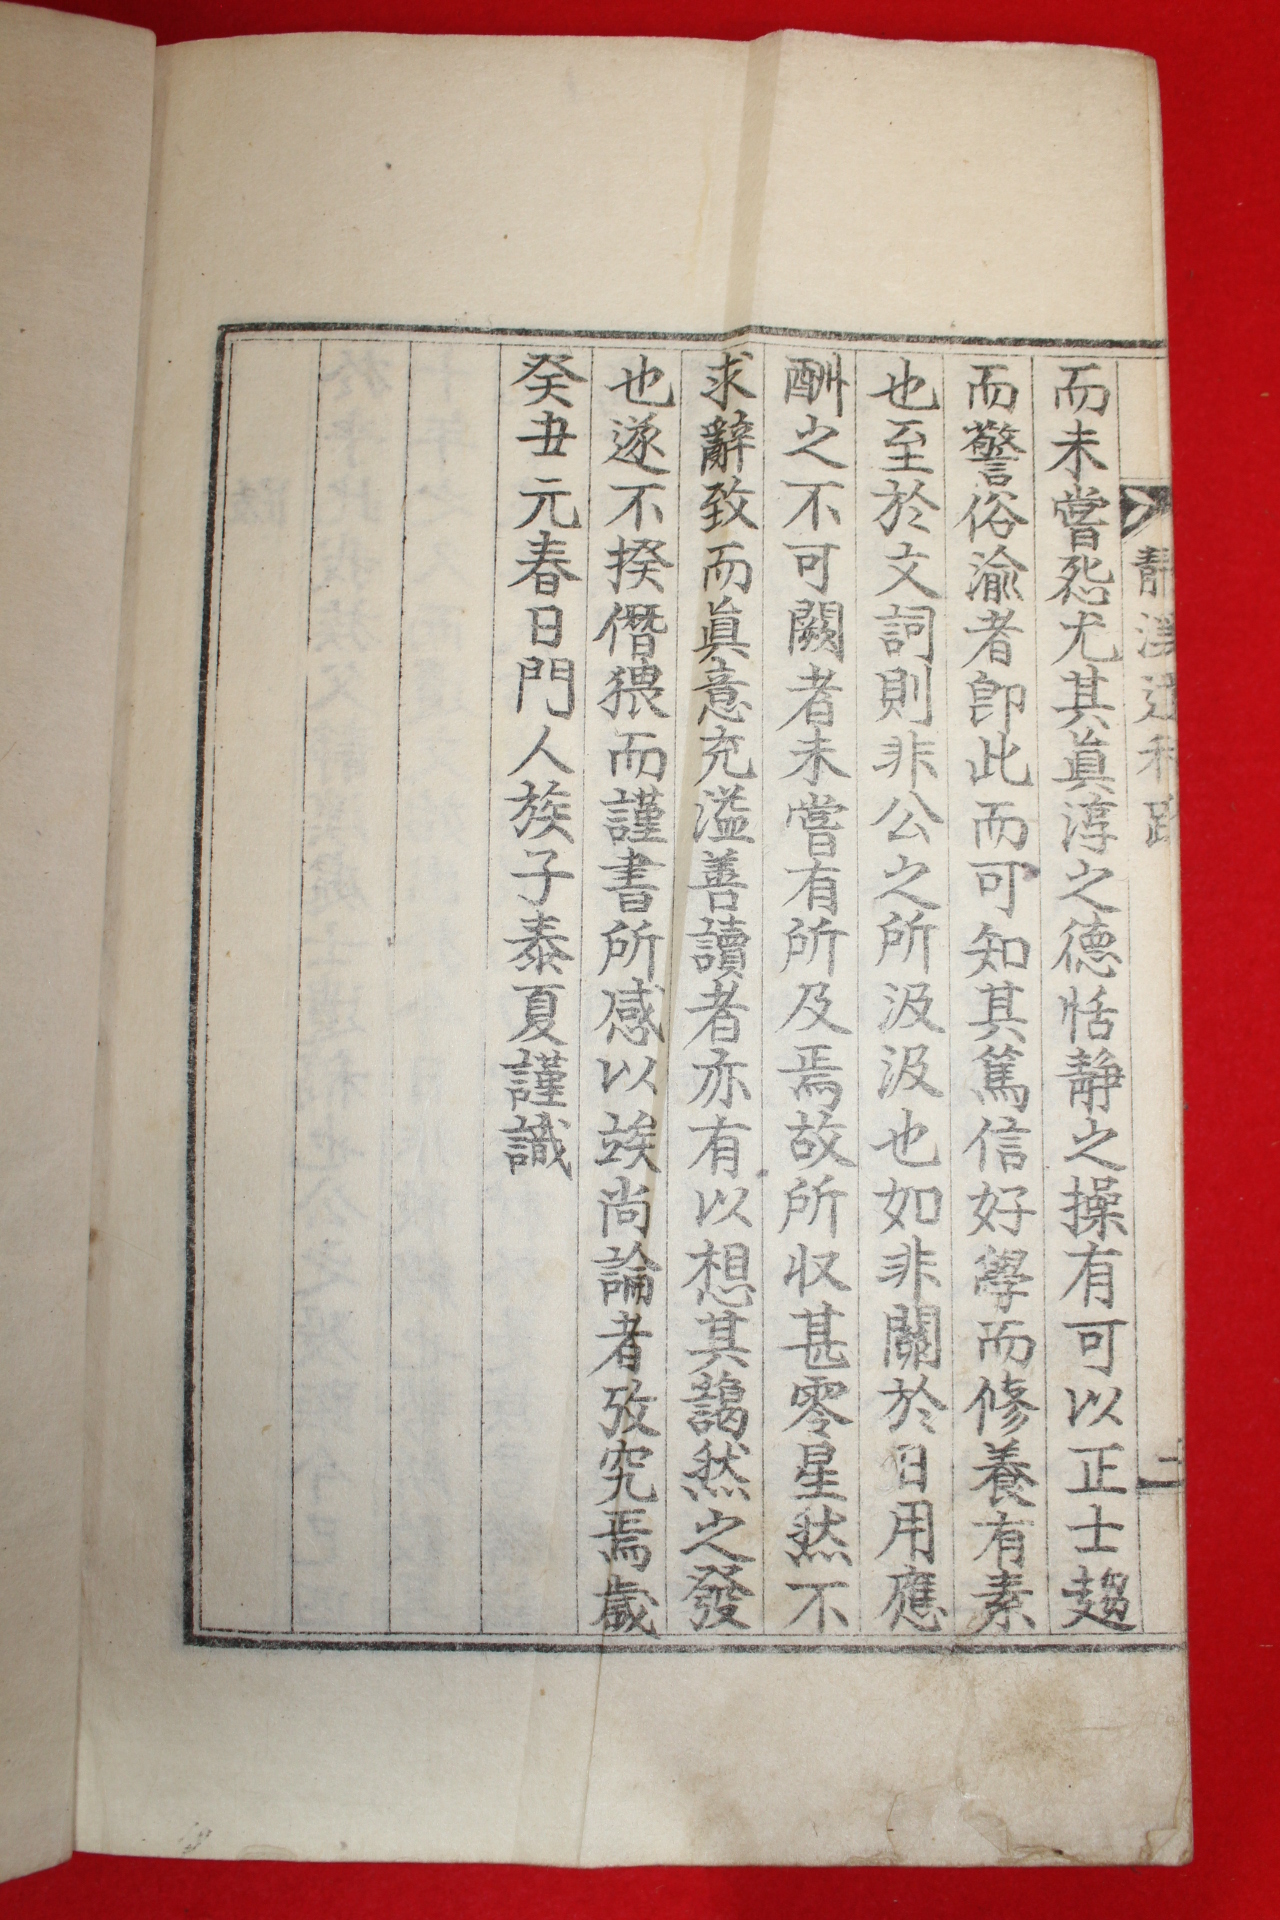 靜溪逸稿跋
二
而未嘗怨尤其眞淳之德恬靜之操有可以正士趨
而警俗渝者卽此而可知其篤信好學而修養有素
也至於文詞則非公之所汲汲也如非關於日用應
酬之不可闕者未嘗有所及焉故所收甚零星然不
求辭致而眞意充溢善讀者亦有以想其藹然之發
也遂不揆僭猥而謹書所感以竢尚論者攷究焉歲
癸丑元春日門人族子泰夏謹識